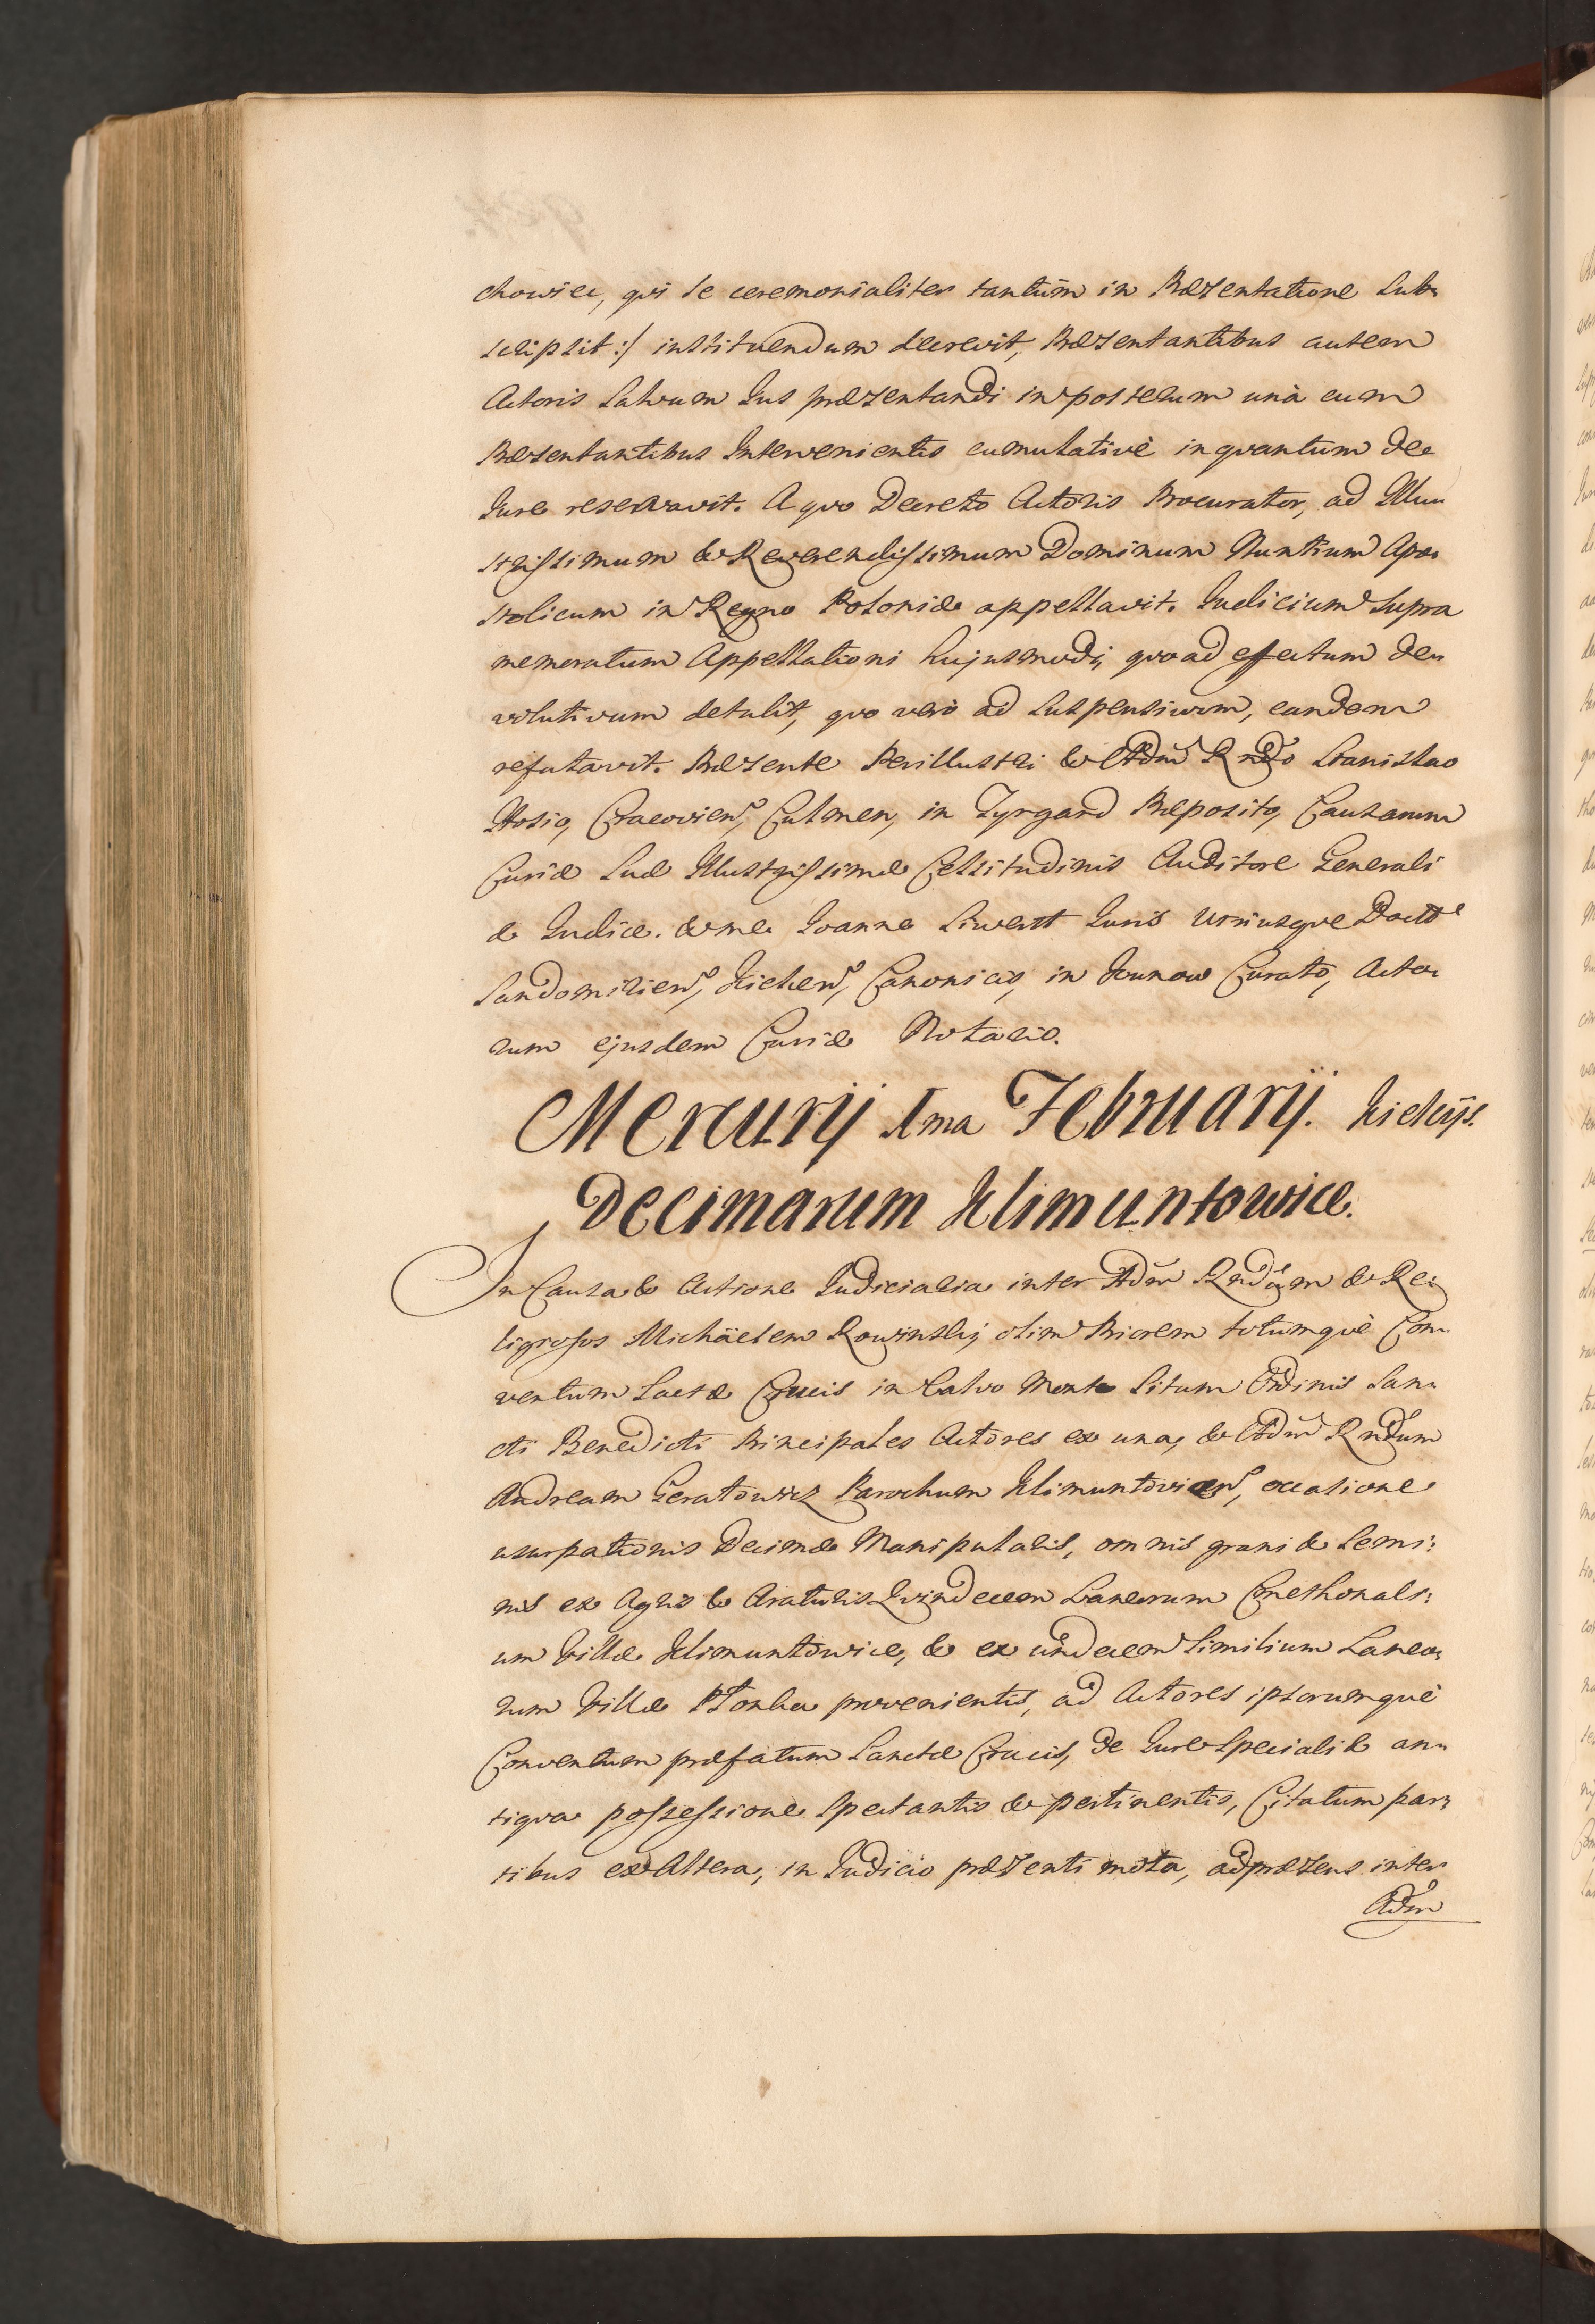 chowiec, qvi se ceremonialiter tantùm in Præsentatione sub„
scripsit :/ instituendum decrevit, Præsentantibus autem
Actoris salvum Jus præsentandi in posterum unà cum
Præsentantibus Intervenientis cumulativè inqvantum de
Jure reservavit. A qvo Decreto Actoris Procurator, ad Illu„
strissimum & Reverendissimum Dominum Nuntium Apo„
stolicum in Regno Poloniæ appellavit. Judicium supra
memoratum Appellationi hujusmodi, qvoad effectum de„
volutivum detulit, qvo verò ad suspensivum, eandem
refutavit. Præsente Perillustri & Adm Rndo Stanislao
Hosio, Cracovien, Culmen, in Tyrgard Præposito, Causarum
Curiæ suæ Illustrissimæ Celsitudinis Auditore Generali
& Judice. & me Joanne Siwertt Juris Utriusqve Doctre
Sandomirien, Kielcen, Canonico, in Kunow Curato, Acto„
rum ejusdem Curiæ Notario.
Mercurij Ima Februarij. Kielcijs.
Decimarum Klimuntowice.
In Causa & Actione Judiciaria inter Adm Rndum & Re„
ligiosos Michäelem Rowinskj olim Priorem totumqvè Con„
ventum Sactæ Crucis in Calvo Monte situm Ordinis San„
cti Benedicti Principales Actores ex una, & Adm Rndum
Andream Geratowicz Parochum Klimuntovien, occasione
usurpationis Decimæ Manipularis, omnis grani & semi:
nis ex Agris & Araturis Qvindecem Laneorum Cmethonali:
um Villæ Klimuntowice, & ex undecem similium Laneo„
rum Villæ Ptonka provenientis, ad Actores ipsorumqvè
Conventum præfatum Sanctæ Crucis, de Jure speciali & an„
tiqva possessione spectantis & pertinentis, Citatum par„
tibus ex altera, in Judicio præsenti mota, ad præsens inter
Adm